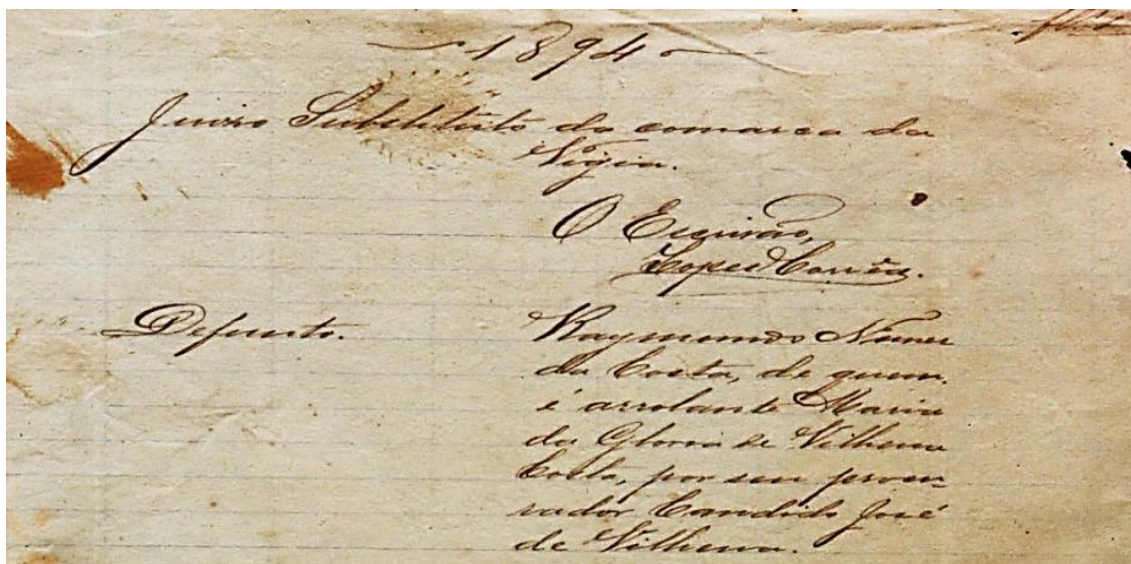 1894
Juizo Substituto da comarca da
Vigia.
O Escrivão,
Lopes Corrêa.
Defunto.
Raymundo Nunes
da Costa, de quem
é arrolante Maria
da Gloria de Vilhena
Costa, por seu procu-
rador Candido José
de Vilhena.